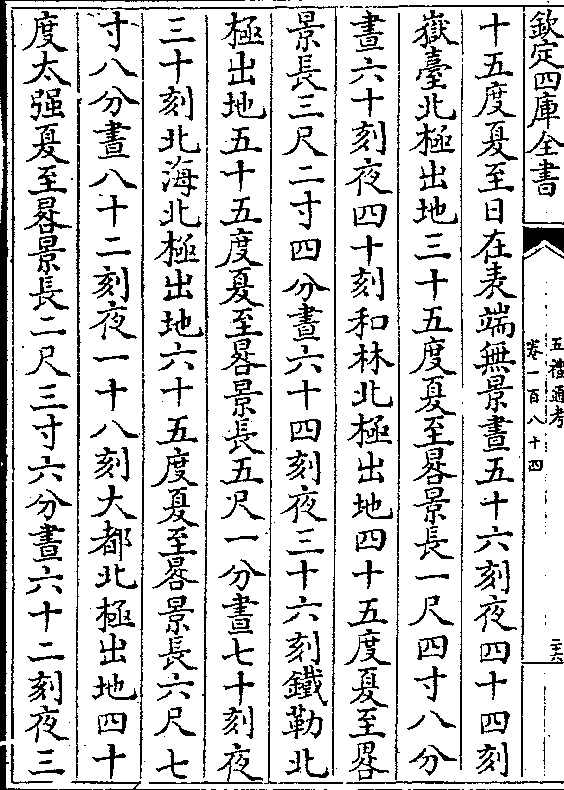 欽定四庫全書
五禮通考
卷一百八十四
二十六
十五度夏至日在表端無景晝五十六刻夜四十四刻
嶽臺北極出地三十五度夏至晷景長一尺四寸八分
晝六十刻夜四十刻和林北極出地四十五度夏至晷
景長三尺二寸四分晝六十四刻夜三十六刻鐵勒北
極出地五十五度夏至晷景長五尺一分晝七十刻夜
三十刻北海北極出地六十五度夏至晷景長六尺七
寸八分晝八十二刻夜一十八刻大都北極出地四十
度太强夏至晷景長二尺三寸六分晝六十二刻夜三